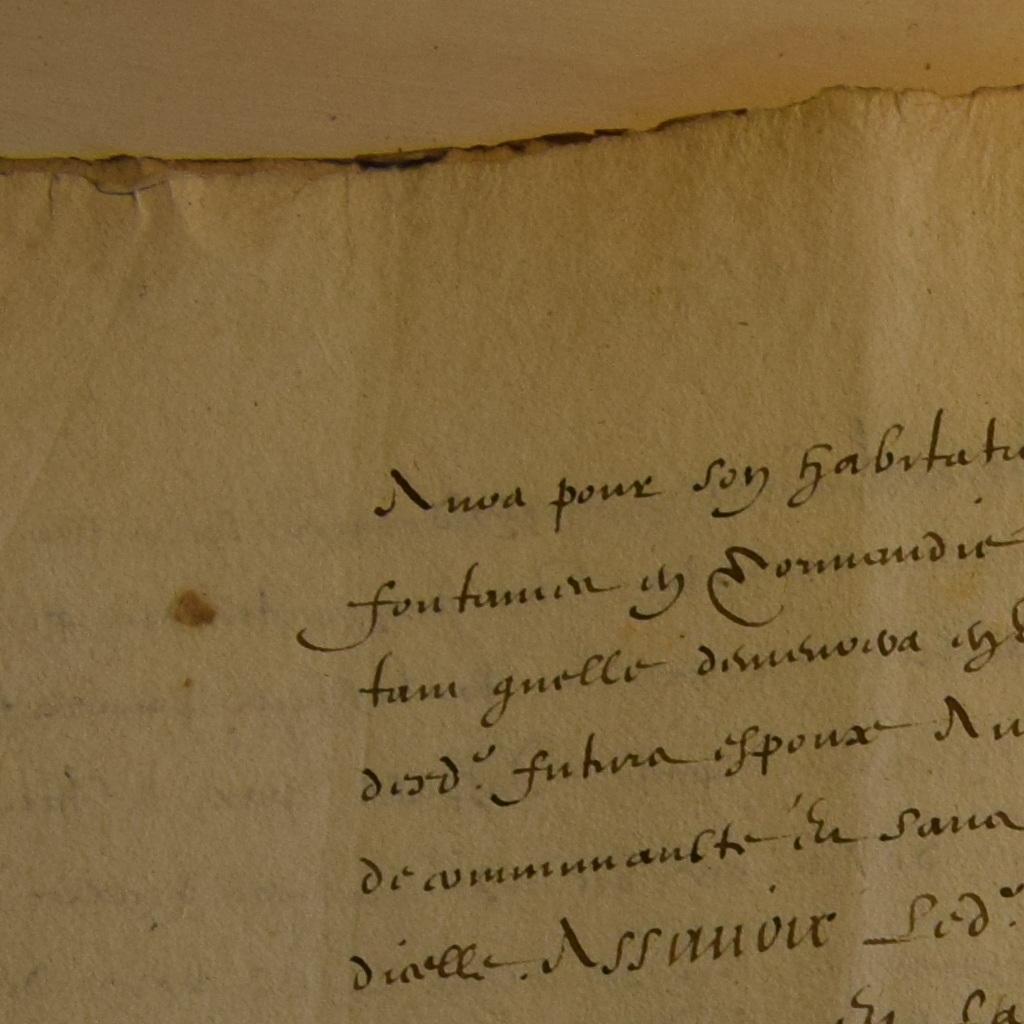 Aura pour son habitatio
fontaines en Normandie
tant quelle demeurera en
desd.s futurs espoux Au
de communaulté Et sans
dicelle. Assauoir Led.
Et sa